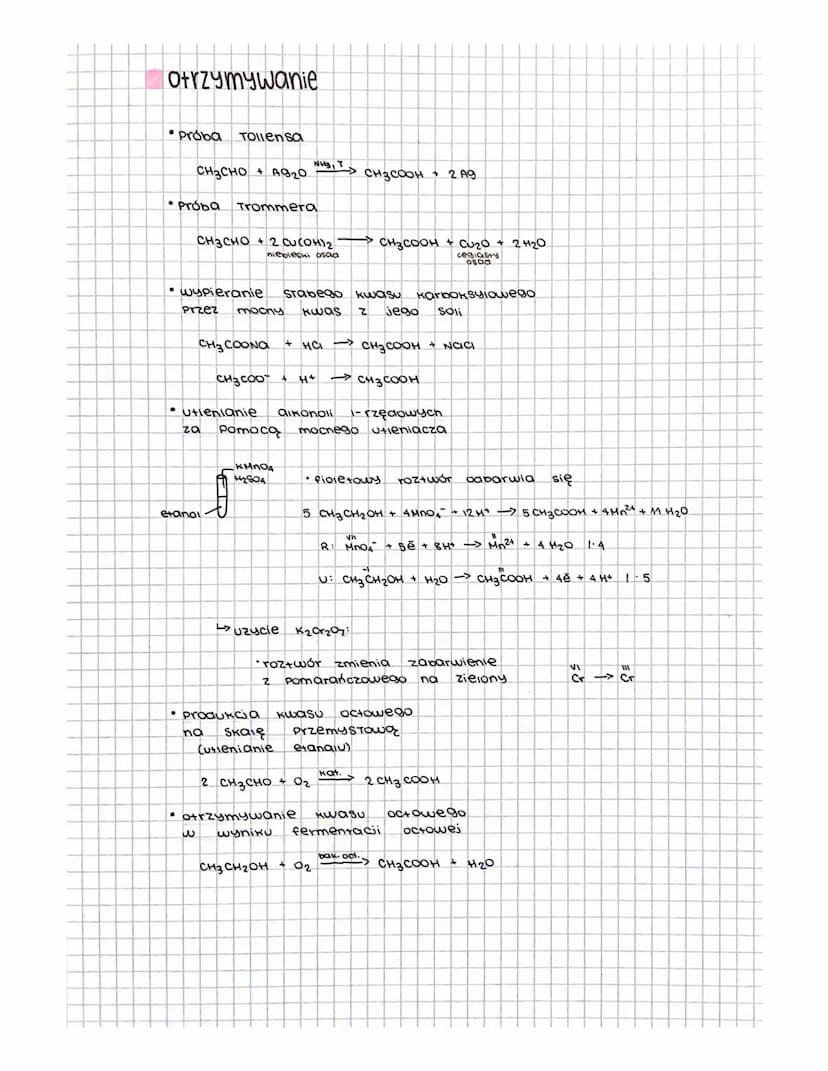 otrzymywanie
• próba Tollensa
CH₃CHO + Ag₂O —NH₃, T→ CH₃COOH + 2 Ag
• próba Trommera
CH₃CHO + 2 Cu(OH)₂ → CH₃COOH + Cu₂O + 2 H₂O
niebieski osad ceglasty
osad
• wypieranie słabego kwasu karboksylowego
przez mocny kwas z jego soli
CH₃COONa + HCl → CH₃COOH + NaCl
CH₃COO⁻ + H⁺ → CH₃COOH
• utlenianie alkoholi 1-rzędowych
za pomocą mocnego utleniacza
KMnO₄
H₂SO₄
• fioletowy roztwór odbarwia się
etanol
5 CH₃CH₂OH + 4MnO₄⁻ + 12H⁺ → 5 CH₃COOH + 4Mn²⁺ + 11 H₂O
VII II
R: MnO₄⁻ + 5ē + 8H⁺ → Mn²⁺ + 4 H₂O |·4
-I III
U: CH₃CH₂OH + H₂O → CH₃COOH + 4ē + 4H⁺ |·5
↳ użycie K₂Cr₂O₇:
• roztwór zmienia zabarwienie
z pomarańczowego na zielony
VI III
Cr → Cr
• produkcja kwasu octowego
na skalę przemysłową
(utlenianie etanalu)
2 CH₃CHO + O₂ —kat.→ 2 CH₃COOH
• otrzymywanie kwasu octowego
w wyniku fermentacji octowej
CH₃CH₂OH + O₂ —bak. oct.→ CH₃COOH + H₂O